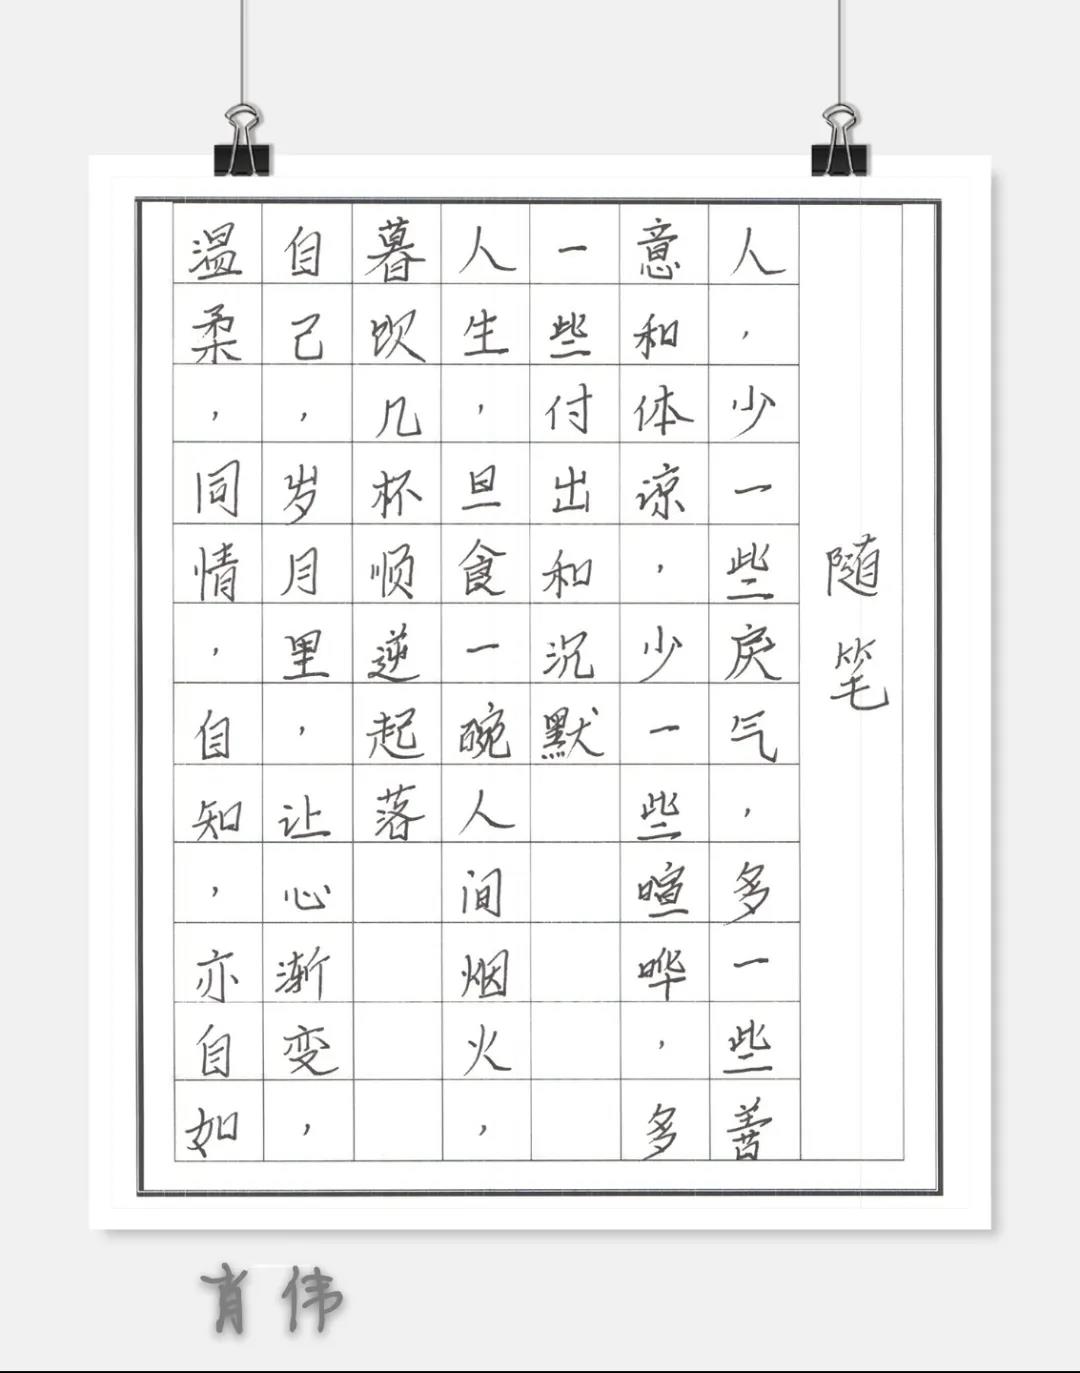 随笔
人，少一些戾气，多一些善
意和体谅，少一些喧哗，多
一些付出和沉默
人生，旦食一碗人间烟火，
暮饮几杯顺逆起落
自己，岁月里，让心渐变，
温柔，同情，自知，亦自如
肖伟